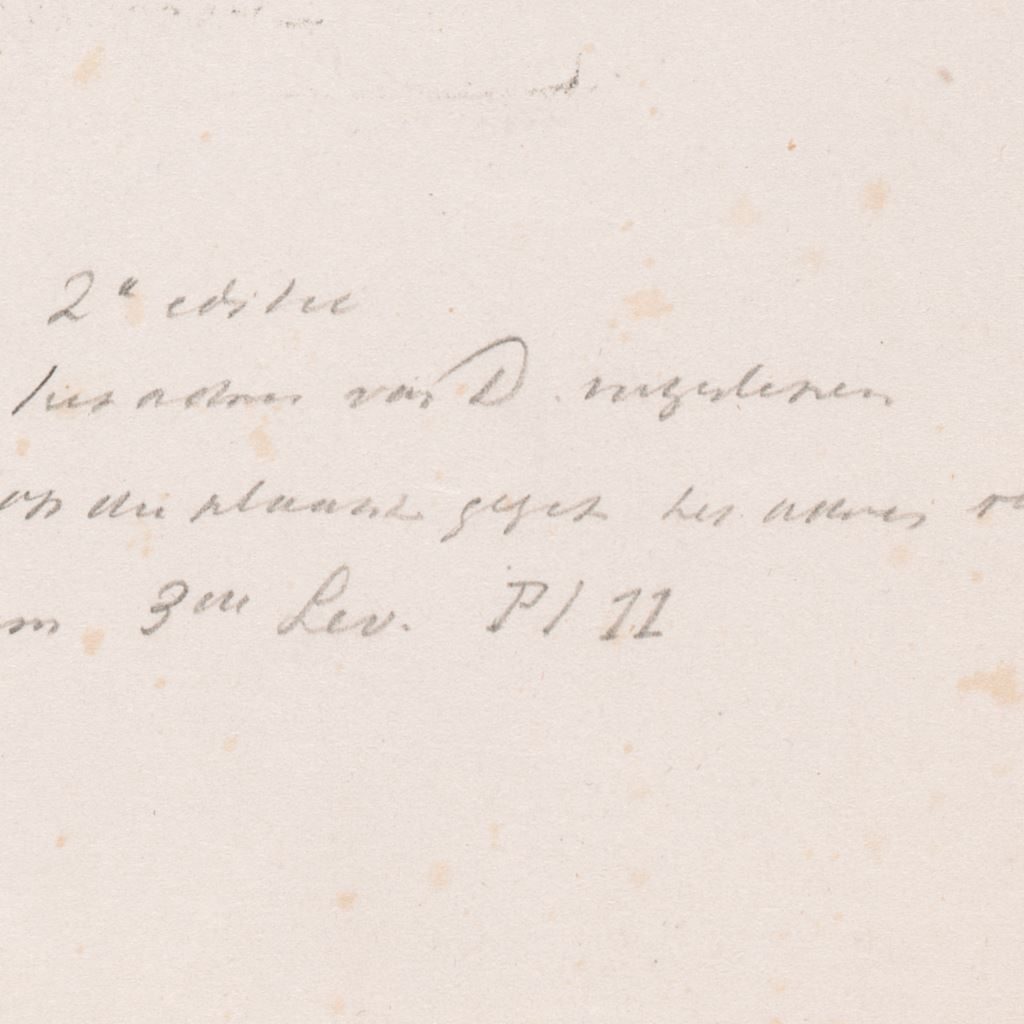 2e editie
het adres van D. uitgeslepen
op die plaats gezet het adres
3me Lev. Pl 11